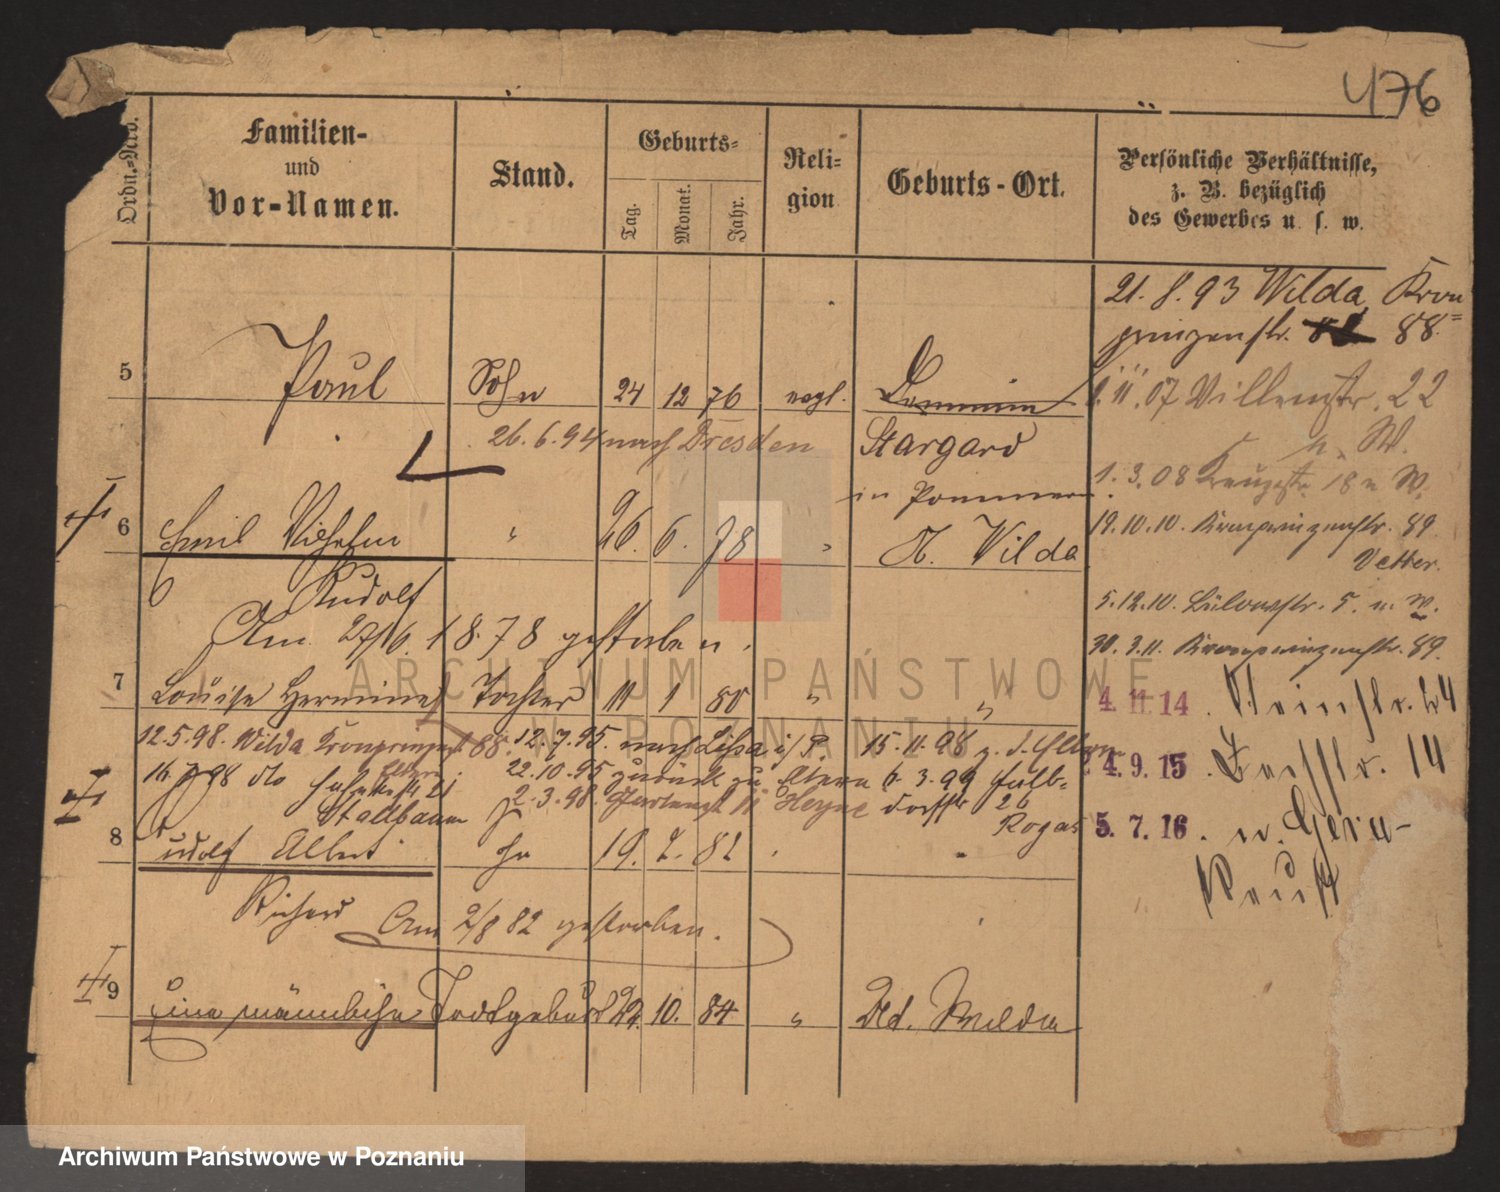 476
Ordn.-Nro.
Familien-
und
Vor-Namen.
Stand.
Geburts-
Tag.
Monat.
Jahr.
Reli-
gion
Geburts-Ort.
Persönliche Verhältnisse,
z. B. bezüglich
des Gewerbes u. s. w.
21. 8. 93 Wilda Kron=
prinzenstr. 88.
5 Paul Sohn 24 12 76 evgl. Dominium
11. 07 Villenstr. 22
26. 6. 94 nach Dresden Stargard
n. W.
in Pommern
1. 3. 08 Kreuzstr. 18 n W.
6 Emil Wilhelm " 26. 6. 78 " O. Wilda
19. 10. 10. Kronprinzenstr. 89
Vetter.
Rudolf
5. 12. 10. Bülowstr. 5. n. W.
Am 27/6. 1878 gestorben.
30. 3. 11. Kronprinzenstr. 89.
7 Louise Hermine Tochter 11 1 80 " "
4. 11. 14. Steinstr. 24
12. 5. 98. Wilda Kronprinzenst 88. 12. 7. 95. nach Lissa i/P. 15. 11. 98 z. d. Eltern
16. 98 do 22. 10. 95 zurück zu Eltern 6. 3. 99
24. 9. 15. 14
Stallbaum 2. 3. 98. Heyne dorfstr 26
Rogas
5. 7. 16. n. Gera-
8 Rudolf Albert 19. 2. 82 "
Reuß
Richard Am 2/8 82 gestorben.
9 Eine männliche Todtgeburt 22. 10. 84 " Old. Wilda
ARCHIWUM PAŃSTWOWE
W POZNANIU
Archiwum Państwowe w Poznaniu